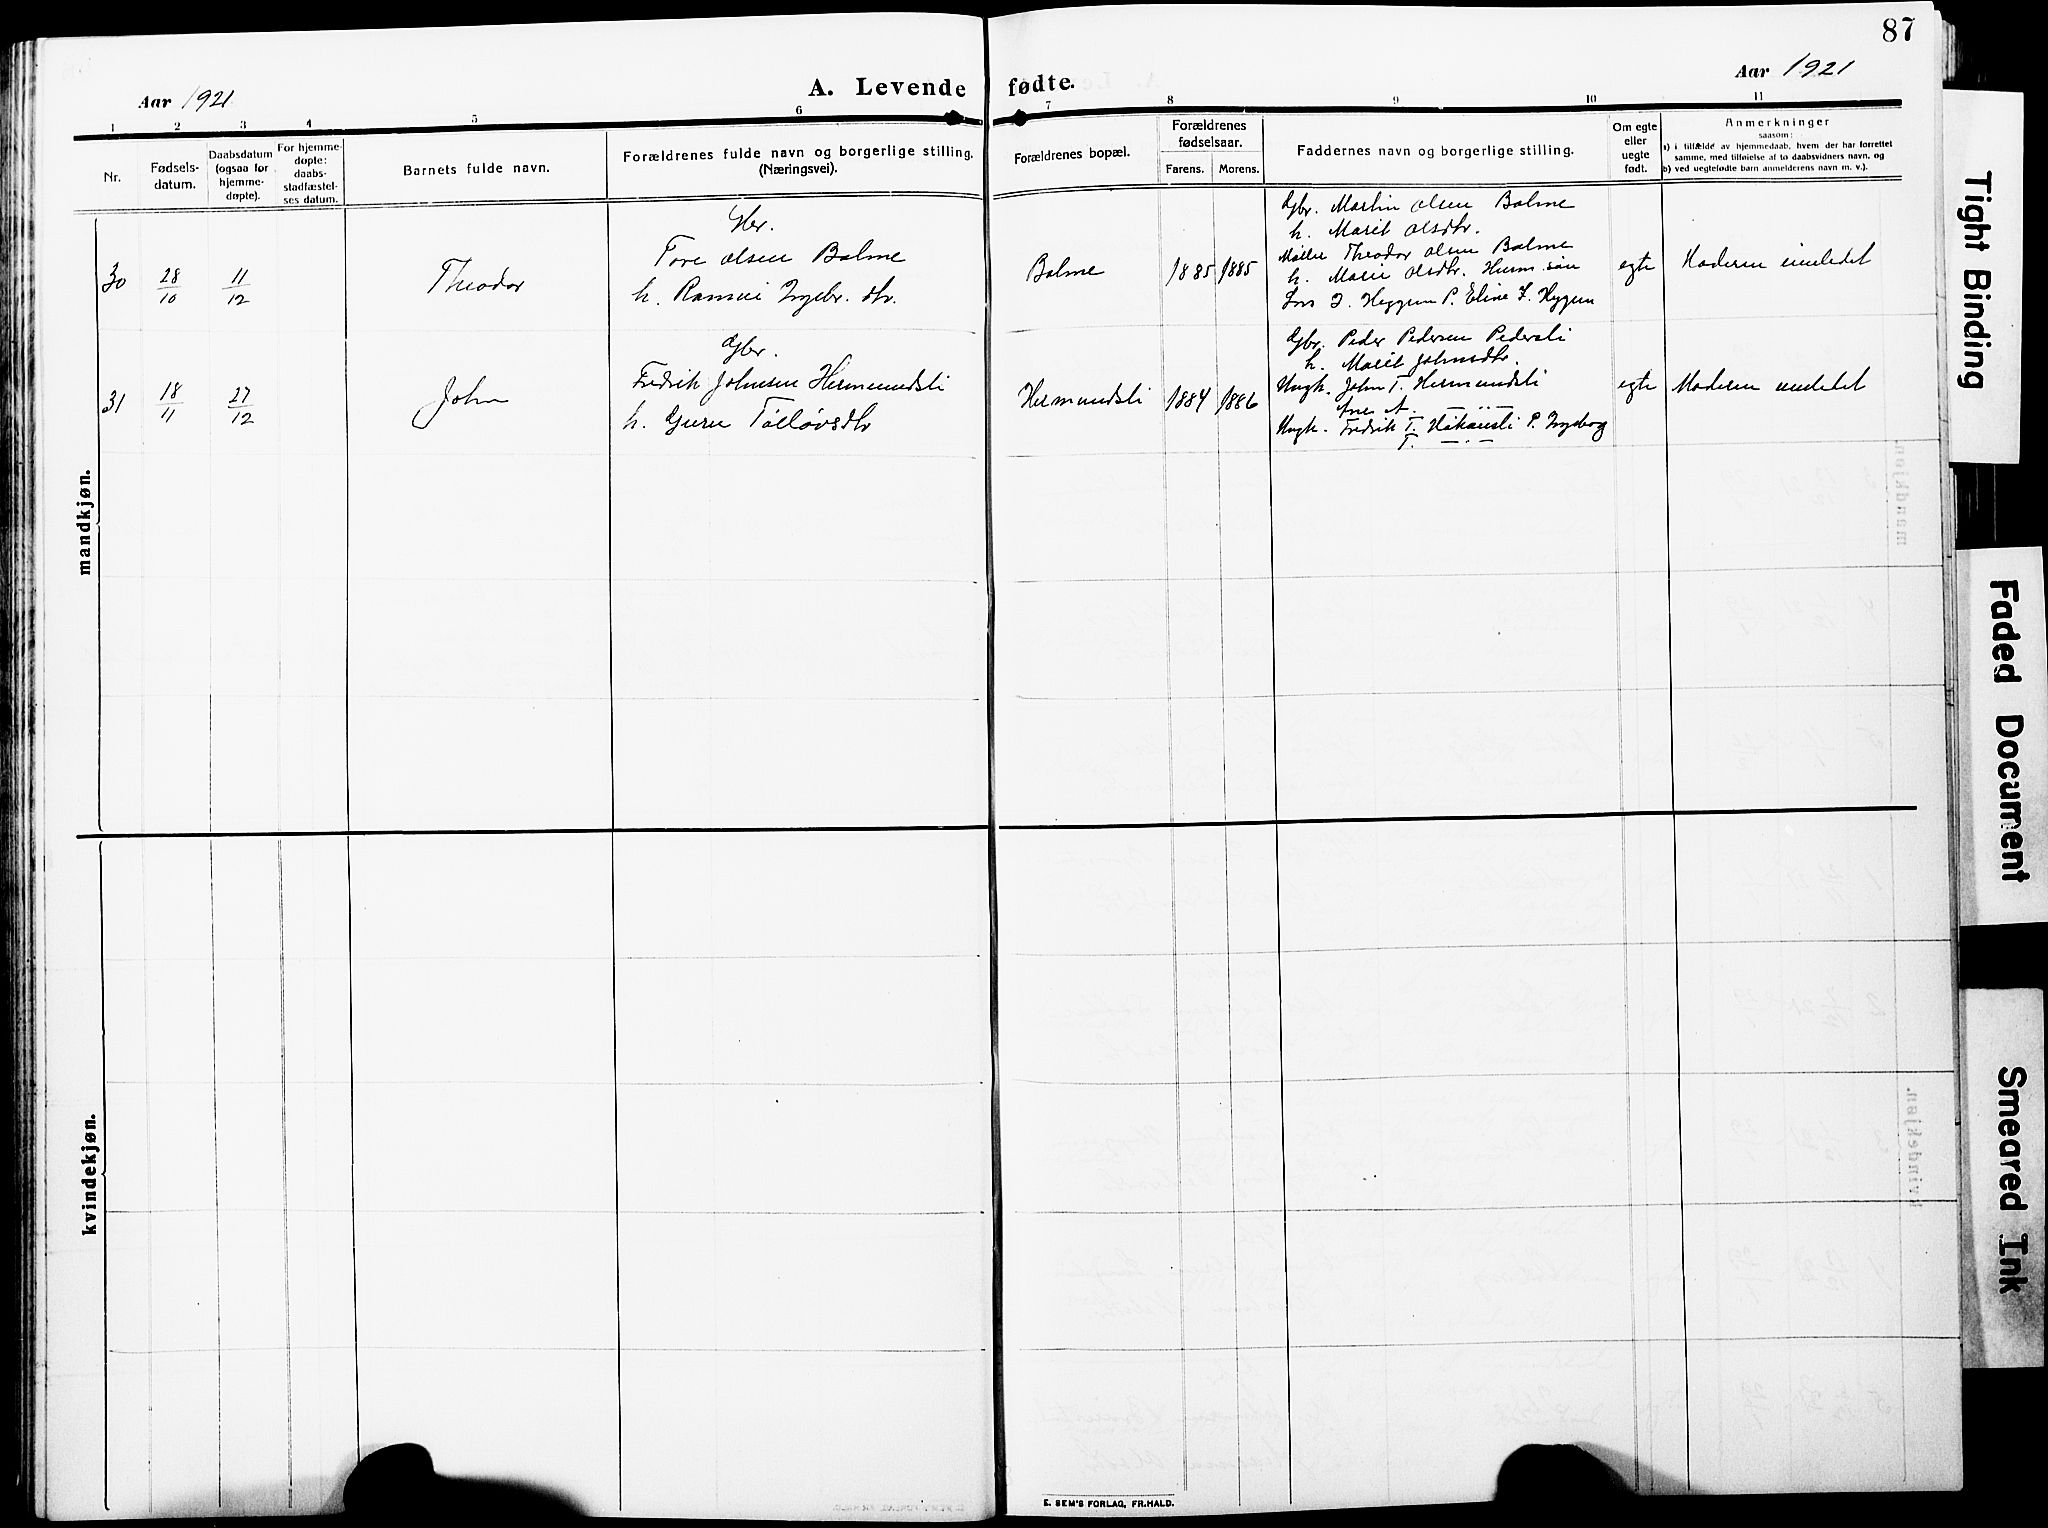 87
Aar 1921
A. Levende fødte.
Aar 1921
1 2 3 4 5 6 7 8 9 10 11
Nr.
Fødsels-
datum.
Daabsdatum
(ogsaa for
hjemme-
døpte).
For hjemme-
døpte:
daabs-
stadfæstel-
ses datum.
Barnets fulde navn.
Forældrenes fulde navn og borgerlige stilling.
(Næringsvei).
Forældrenes bopæl.
Forældrenes
fødselsaar.
Farens. Morens.
Faddernes navn og borgerlige stilling.
Om egte
eller
uegte
født.
Anmerkninger
saasom:
a) i tilfælde av hjemmedaab, hvem der har forrettet
samme, med tilføielse af to daabsvidners navn, og
b) ved uegtefødte barn anmelderens navn m. v.).
mandkjøn.
30
28/10
11/12
Theodor
Gbr.
Tore Olsen Bolme
h. Ingebr. dtr.
Bolme
1885 1885
Gbr. Martin Olsen Bolme
h. Marit Olsdtr.
Møller Theodor Olsen Bolme
h. Marie Olsdtr.
Lars J. Heggem P. Eline J. Heggem
egte
Moderen innledet
31
18/11
27/12
John
Gbr.
Fredrik Johnsen Hermundsli
h. Guru Tølløvsdtr
Hermundsli
1884 1886
Gbr. Peder Pedersen Pedersli
h. Marit Johnsdtr.
Ungk. John T. Hermundsli
Ane A. — " —
Ungk. Fredrik T. Håkansli P. Ingeborg
T. — " —
egte
Moderen innledet
kvindekjøn.
E. SEM'S FORLAG, FR.HALD.
Tight Binding
Faded Document
Smeared Ink